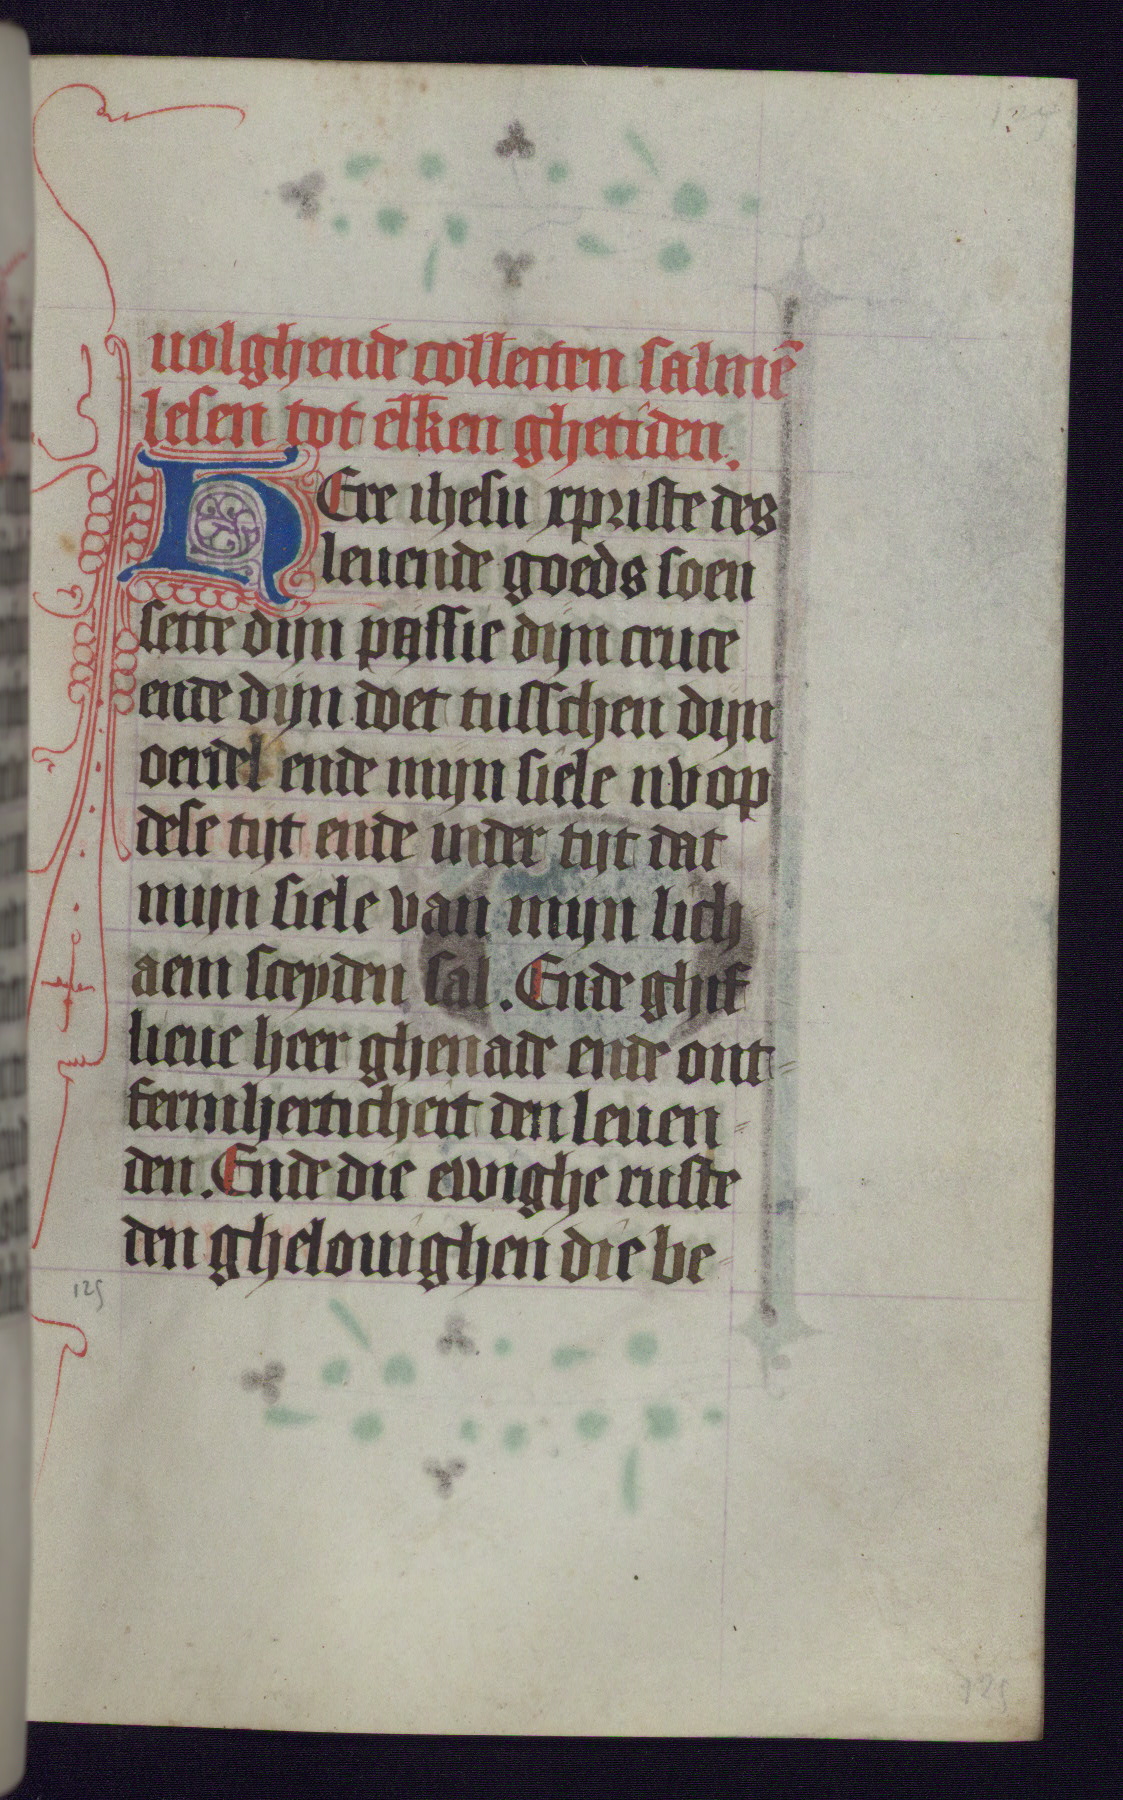 uolghende collecten salmē
lesen tot elken ghetiden.
HEre ihesu xpriste des
leuende goeds soen
sette dijn passie dijn cruce
ende dijn doet tusschen dijn
oerdel ende mijn siele nv op
dese tijt ende inder tijt dat
mijn siele van mijn lich
aem sceyden sal. Ende ghif
lieue heer ghenade ende ont-
fermhertichert den leuen-
den. Ende die ewighe ruste
den ghelouighen die be-
125
125